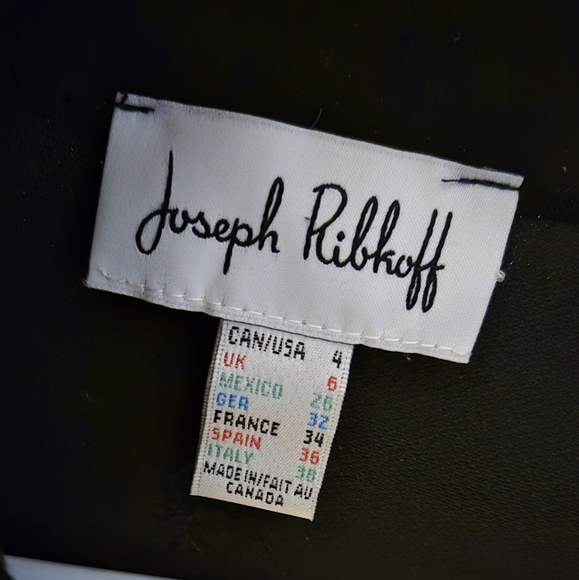 Joseph Ribkoff
CAN/USA 4
UK 6
MEXICO 26
GER 32
FRANCE 34
SPAIN 36
ITALY 38
MADE IN/FAIT AU
CANADA